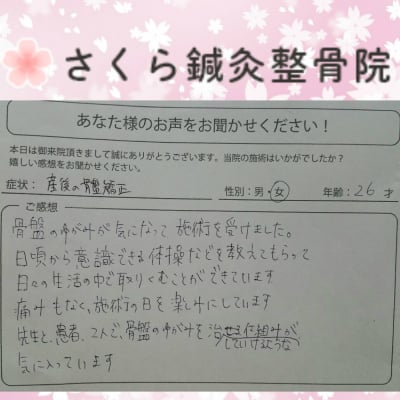 さくら鍼灸整骨院
あなた様のお声をお聞かせください！
本日は御来院頂きまして誠にありがとうございます。当院の施術はいかがでしたか？
嬉しい感想をお聞かせください。
症状: 産後の骨盤矯正 性別:男・女 年齢:26才
ご感想
骨盤のゆがみが気になって施術を受けました。
日頃から意識できる体操などを教えてもらって
日々の生活の中で取りくむことができています
痛みもなく、施術の日を楽しみにしています
先生と、患者、2人で、骨盤のゆがみを治せる仕組みが
していけるような
気に入っています